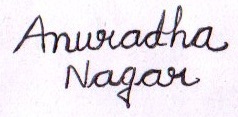 Anuradha
Nagar